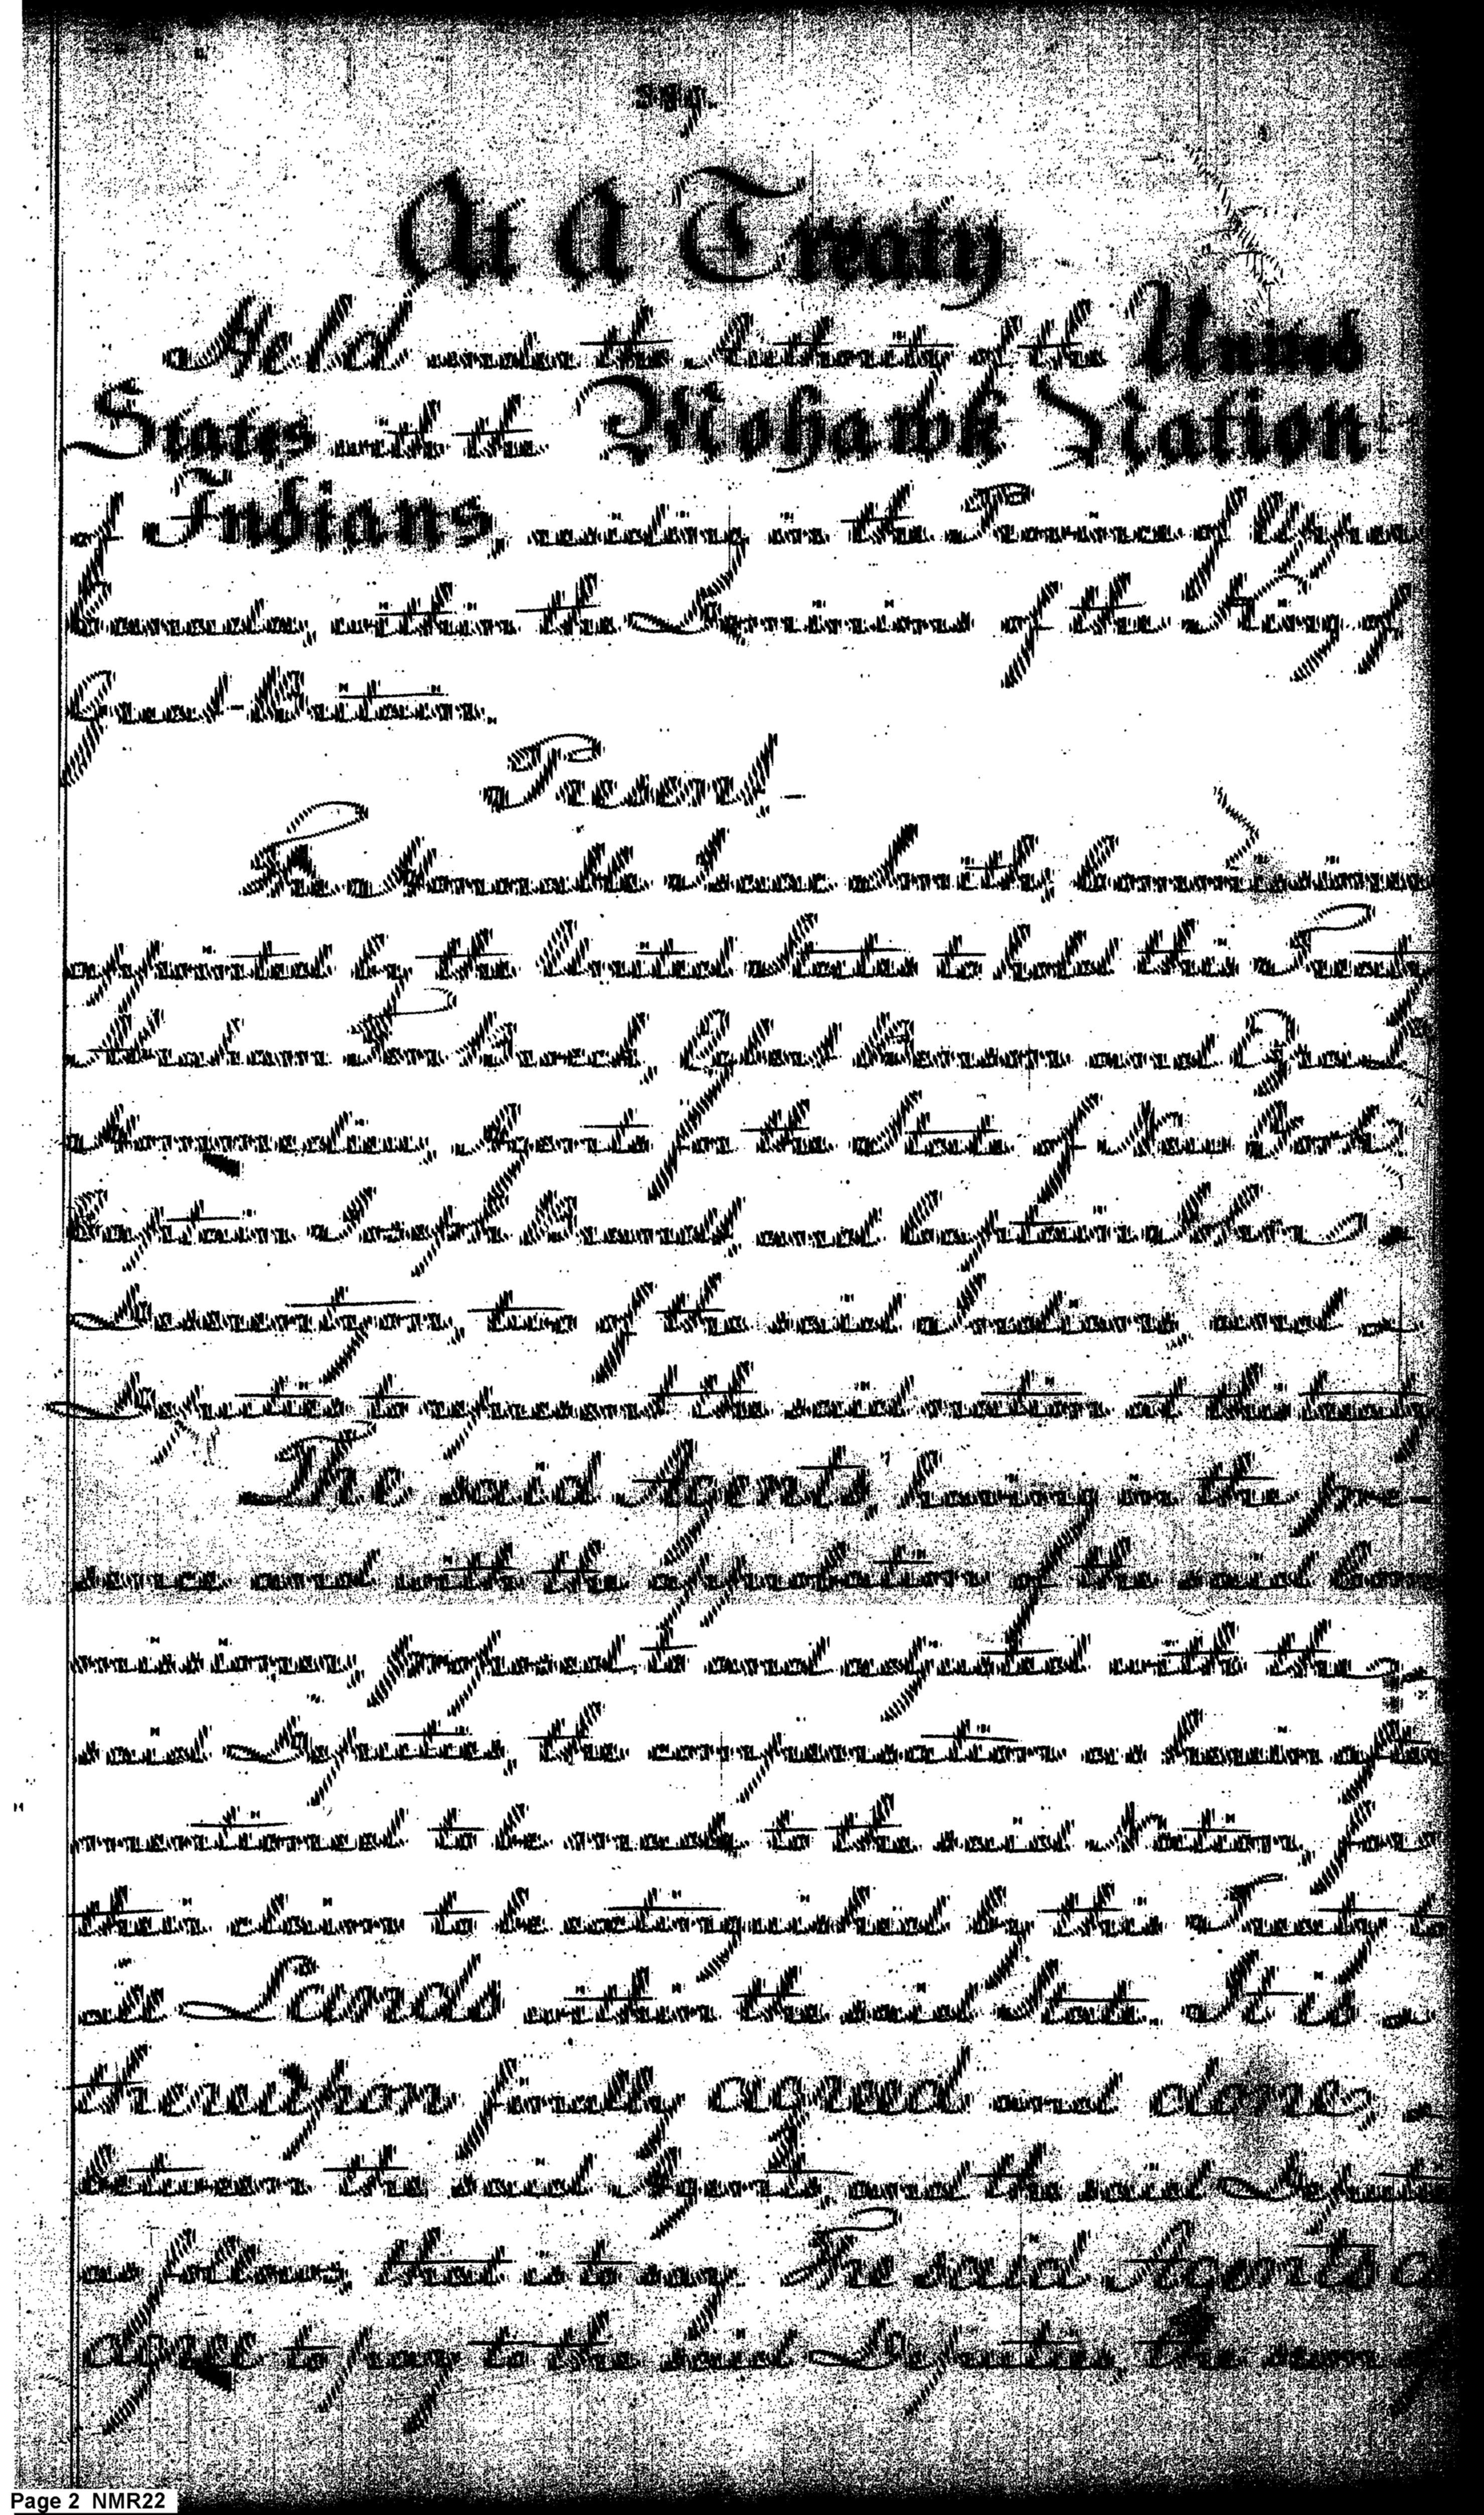 At A Treaty
Held under the Authority of the United
States with the Mohawk Nation
of Indians, residing in the Province of Upper
Canada, within the Dominions of the King of
Great-Britain.
Present,-
The Honorable Isaac Smith, Commissioner
appointed by the United States to hold this Treaty
Abraham Ten Broeck, Egbert Benson and Ezra L
Hommedieu, Agents for the State of New York
Captain Joseph Brandt, and Captain John
Deserontyon, two of the said Indians and
Deputies to represent the said nation at this treaty
The said Agents, having in the pre-
sence and with the approbation of the said Com
missioner, proposed to and adjusted with the
said Deputies, the compensation as herein after
mentioned to be made to the said Nation, for
their claim to be extinguished by this Treaty to
all Lands within the said State. It is
thereupon finally agreed and done,
between the said Agents, and the said Deputies
as follows, that is to say. The said Agents
agree to pay to the said Deputies, the sum of
Page 2 NMR22